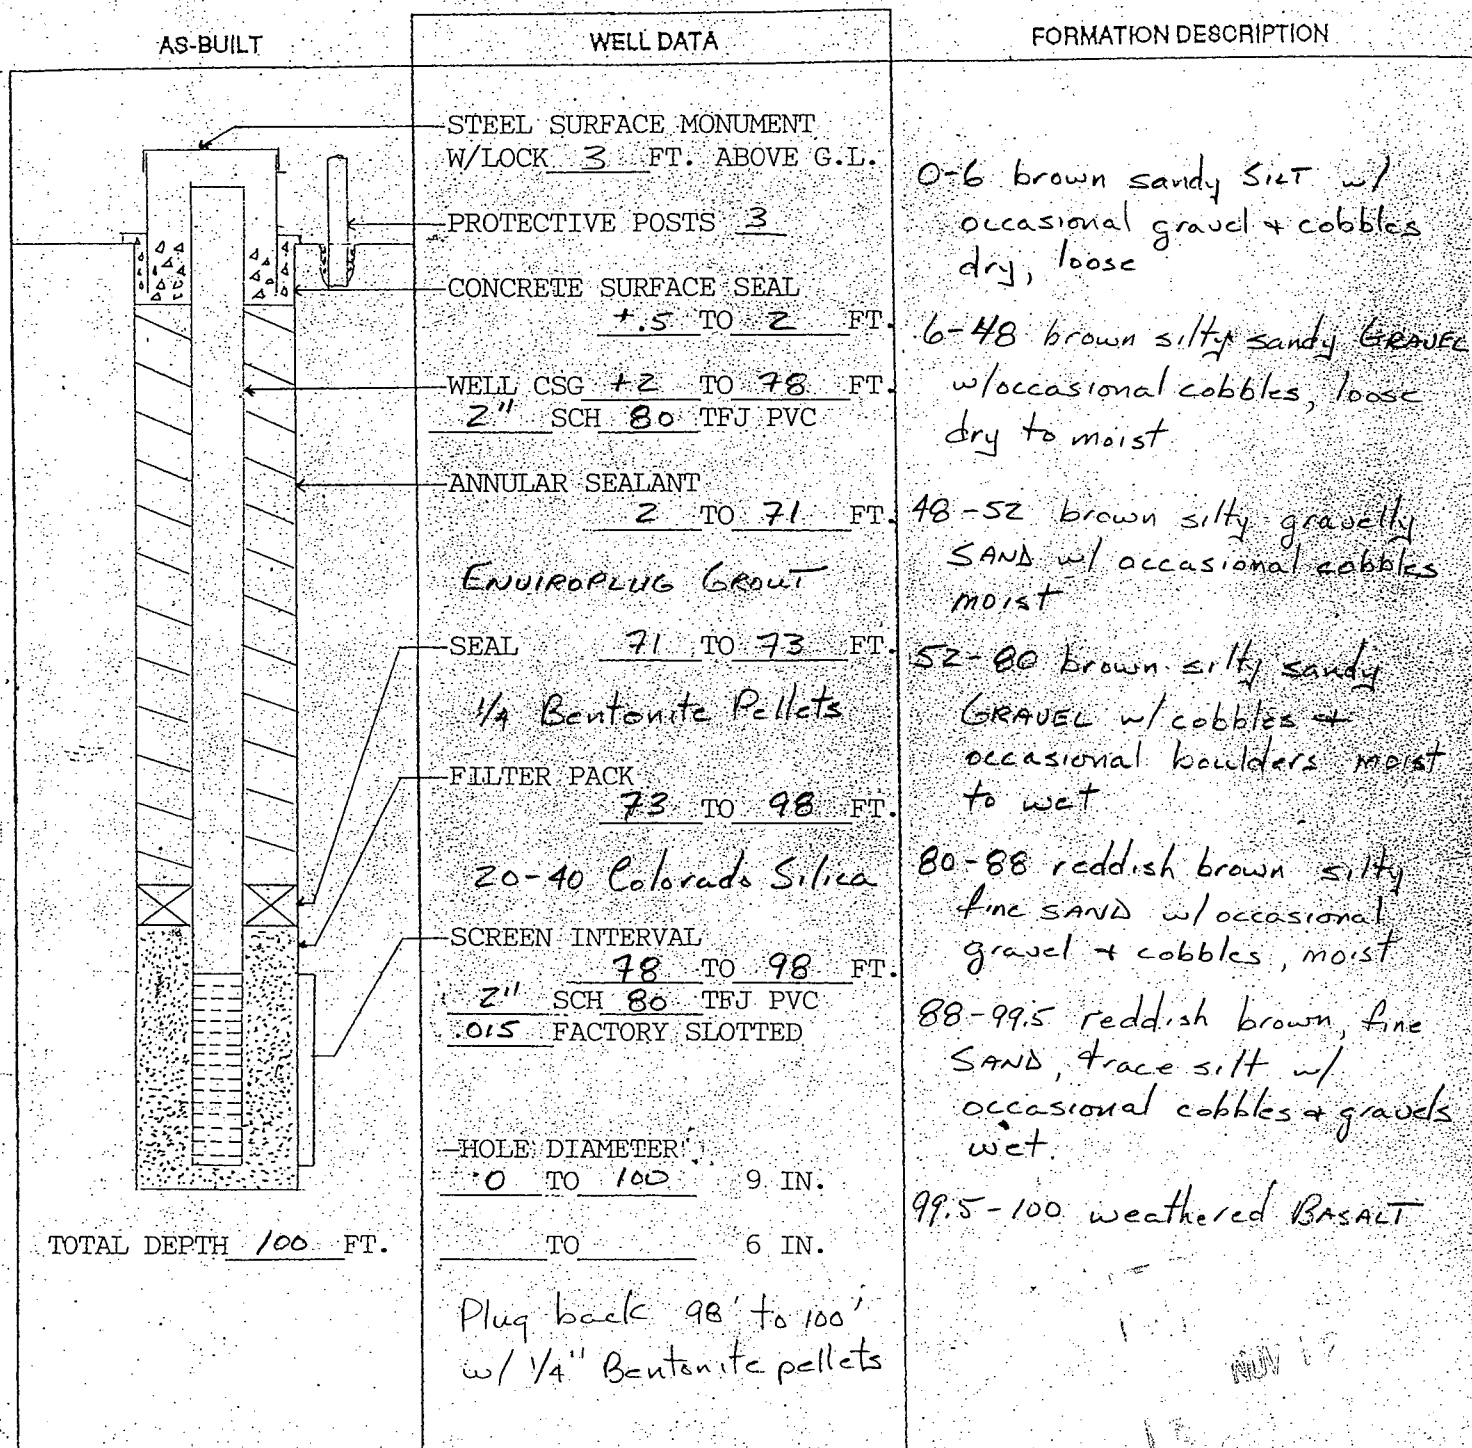 AS-BUILT
WELL DATA
FORMATION DESCRIPTION
STEEL SURFACE MONUMENT
W/LOCK 3 FT. ABOVE G.L.
PROTECTIVE POSTS 3
CONCRETE SURFACE SEAL
+.5 TO 2 FT.
WELL CSG +2 TO 78 FT.
2" SCH 80 TFJ PVC
ANNULAR SEALANT
2 TO 71 FT.
ENVIROPLUG GROUT
SEAL 71 TO 73 FT.
1/4 Bentonite Pellets
FILTER PACK
73 TO 98 FT.
20-40 Colorado Silica
SCREEN INTERVAL
78 TO 98 FT.
2" SCH 80 TFJ PVC
.015 FACTORY SLOTTED
HOLE DIAMETER
0 TO 100 9 IN.
TO 6 IN.
Plug back 98' to 100'
w/ 1/4" Bentonite pellets
TOTAL DEPTH 100 FT.
0-6 brown sandy SILT w/
occasional gravel + cobbles
dry, loose
6-48 brown silty sandy GRAVEL
w/occasional cobbles, loose
dry to moist
48-52 brown silty gravelly
SAND w/ occasional cobbles
moist
52-80 brown silty sandy
GRAVEL w/ cobbles +
occasional boulders moist
to wet
80-88 reddish brown silty
fine SAND w/occasional
gravel + cobbles, moist
88-99.5 reddish brown, fine
SAND, trace silt w/
occasional cobbles + gravels
wet.
99.5-100 weathered BASALT